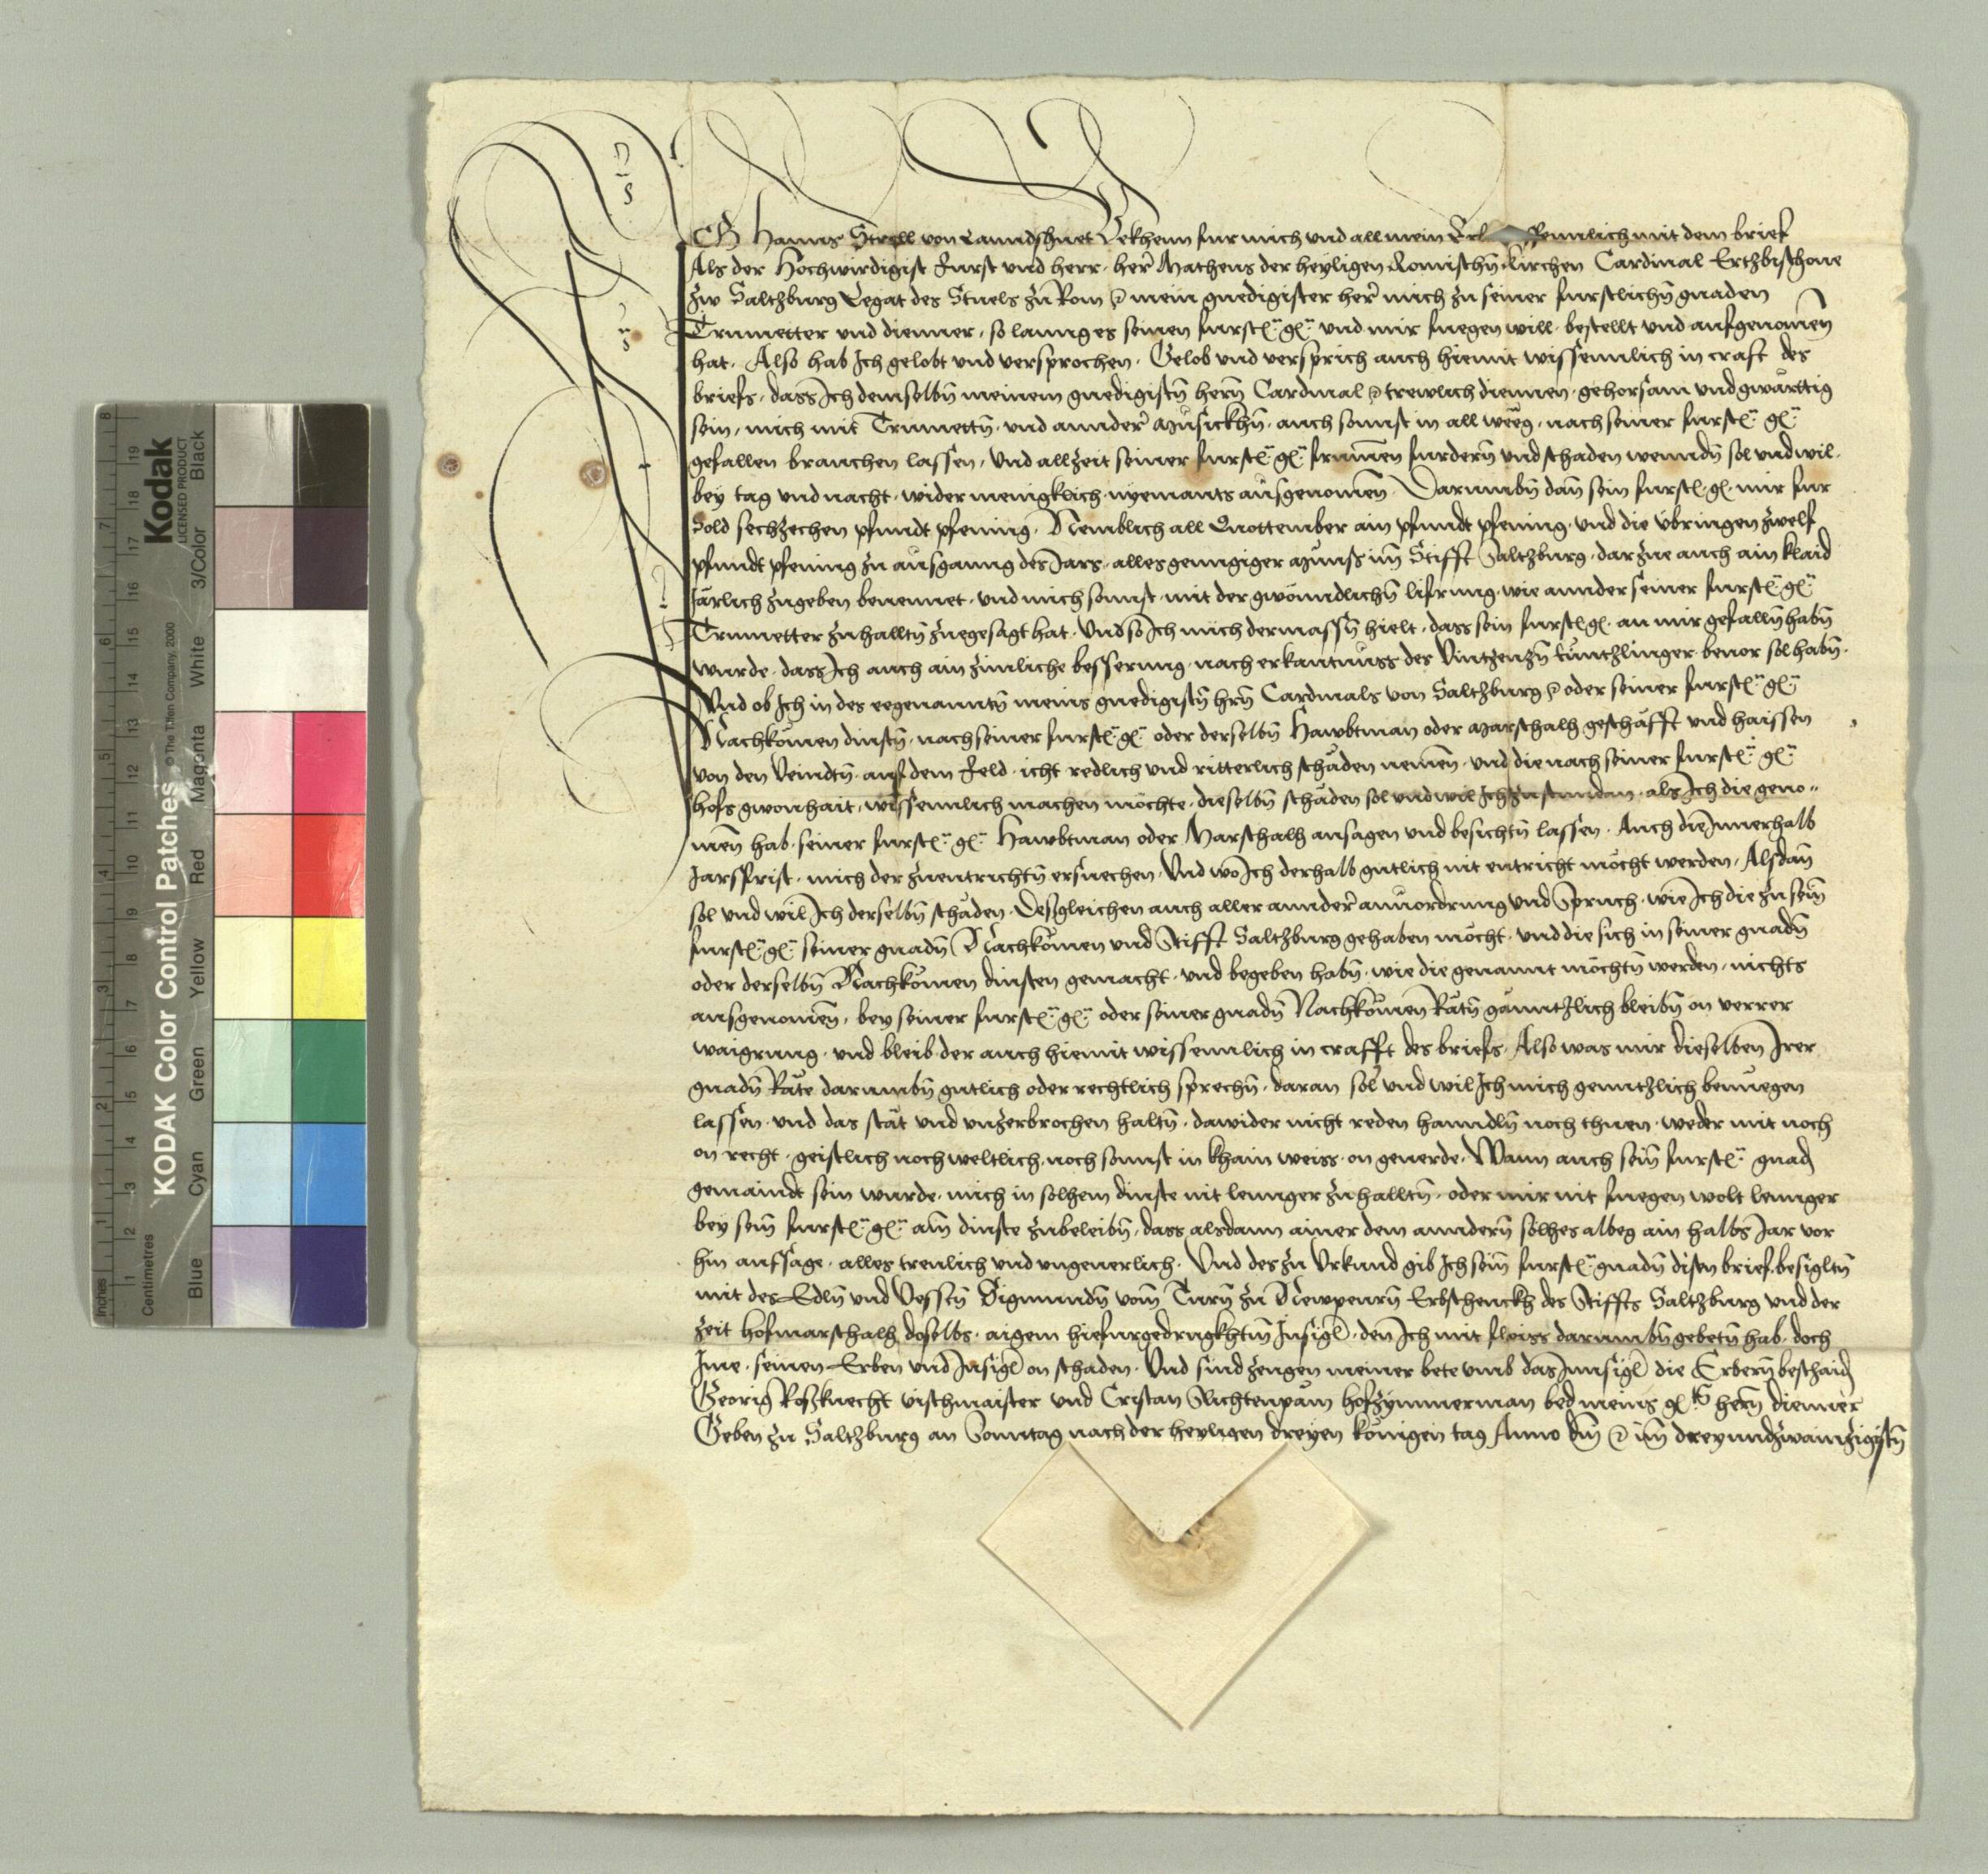 Kodak
LICENSED PRODUCT
KODAK Color Control Patches
© The Tiffen Company, 2000
Inches
Centimetres
Blue Cyan Green Yellow Red Magenta White 3/Color Black
ICH Hanns Strell von Lanndshuet Bekhenn fur mich und all mein Erb offennlich mit dem brief
Als der Hochwirdigist Furst und herr, her Matheus der heyligen Romischn kirchen Cardinal Ertzbischoue
zw Saltzburg Legat des Stuels zu Rom mein gnedigister her mich zu seiner furstlichn gnaden
Trumetter und dienner, so lanng es seinen furstl. gl. und mir fuegen will, bestellt und aufgenomen
hat. Also hab Ich gelobt und versprochen, Gelob und versprich auch hiemit wissennlich in craft des
briefs, dass Ich demselbn meinem gnedigistn hern Cardinal trewlich diennen, gehorsam und gwärttig
sein, mich mit Trumettn, und annder Musickhn, auch sonnst in all weeg, nach seiner furstl. gl.
gefallen brauchen lassen, Und allzeit seiner furstl. gl. frumen furdern und schaden wenndn sol und wil,
bey tag und nacht, wider menigklich, nyemants ausgenomen. Darumbn dan sein furstl. gl. mir fur
Sold sechzechen pfundt pfening, Nemblich all Quottember ain pfundt pfening, und die ubringen zwelf
pfundt pfening zu ausganng des Jars, alles genngiger Munss im Stifft Saltzburg, darzue auch ain klaid
Järlich zugeben benennet, und mich sonnst mit der gwonndlichn lifrung, wie annder seiner furstl. gl.
Trumetter zuhalltn zuegesagt hat. Und so Ich mich dermassn hielt, dass sein furstl. gl. an mir gefalln habn
wurde, dass Ich auch ain zimliche besserung, nach erkantnuss des beuor sol habn.
Und ob Ich in des eegenanntn meins gnedigistn hrn Cardinals von Saltzburg oder seiner furstl. gl.
Nachkomen dinstn, nach seiner furstl. gl. oder derselbn Hawbtman oder Marschalh geschäfft und haissen
von den Veindtn, auf dem Feld, icht redlich und ritterlich schäden nemen, und die nach seiner furstl. gl.
hofs gwonhait, wissennlich machen möchte, dieselbn schäden sol und wil Ich zustundan, als Ich die geno-
men hab, seiner furstl. gl. Hawbtman oder Marschalh ansagen und besichtn lassen. Auch die Innerhalb
Jarsfrist, mich der zuentrichtn ersuechen, Und wo Ich derhalb gutlich nit entricht möcht werden, Alsdan
sol und wil Ich derselbn schäden, Desgleichen auch aller annder anuordrung und Spruch, wie Ich die zu seinn
furstl. gl. seiner gnadn Nachkomen und Stifft Saltzburg gehaben möcht, und die sich in seiner gnadn
oder derselbn Nachkomen dinsten gemacht, und begeben habn, wie die genannt möchtn werden, nichts
ausgenomen, bey seiner furstl. gl. oder seiner gnadn Nachkomen Rätn gänntzlich bleibn on verrer
waigrung, und bleib der auch hiemit wissennlich in crafft des briefs. Also was mir dieselben Irer
gnadn Räte darumbn gutlich oder rechtlich sprechn, daran sol und wil Ich mich genntzlich benuegen
lassen, und das stät und unzerbrochen haltn, dawider nicht reden hanndln noch thuen, weder mit noch
on recht, geistlich noch weltlich, noch sonnst in khain weiss, on geuerde. Wann auch sein furstl. gnad
gemaindt sein wurde, mich in solhem dinste nit lennger zuhalltn, oder mir nit fuegen wolt lennger
bey sein furstl. gl. am dinste zubeleibn, dass alsdann ainer dem anndern solhes albeg ain halbs Jar vor
hin aufsage, alles treulich und ungeuerlich. Und des zu Urkund gib Ich sein furstl. gnadn disen brief, besigltn
mit des Edln und Vesstn Sigmundn vom Turn zu Newpeurn Erbschenckh des Stiffts Saltzburg und der
zeit hofmarschalh doselbs, aigem hiefurgedrugkhtm Insigl, den Ich mit fleiss darumbn gebetn hab, doch
Ime, seinen Erben und Insigl on schaden. Und sind zeugen meiner bete umb das Innsigl die Erbern beschaid
Georig Rosknecht vischmaister und Cristan Viechtenpam hofzymmerman bed meins hern diener
Geben zu Saltzburg an Sonntag nach der heyligen dreyen königen tag Anno dm im dreyundzwainzigistn